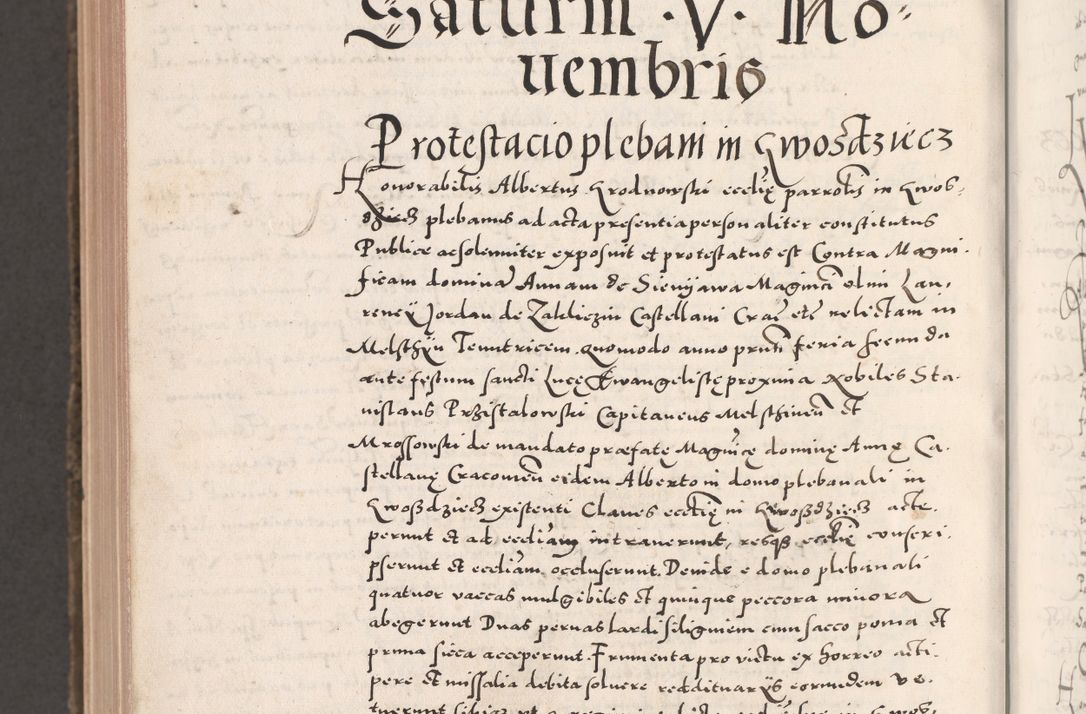 Saturni · V · No-
uembris
Protestacio plebani in Gwosdziecz
Honorabilis Albertus Grodnowski ecclię parrolis in Gwos-
dziecz plebanus ad acta presentia personaliter constitutus
Publice ac solenniter exposuit et protestatus est Contra Magni-
ficam dominā Annam de Sieniyawa Magnici olim Lau-
rencÿ Jordan de Zakliczin Castellani Crac etc relictam in
Melschtÿn Tenutricem. quomodo anno prun feria secunda
ante festum sancti Lucę Ewangelistę proxima Nobiles Sta-
nislaus Przistalowski Capitaneus Melschinen et
Mrossowski de mandato præfatę Magnicę dominę Annę Ca-
stellanę Cracouien eidem Alberto in domo plebanali in
Gwosdziecz existenti Claues ecclię in Gwosdziecz acce-
perunt et ad eccliam intrauerunt, resque ecclię conscri-
pserunt et eccliam occluserunt. Deinde e domo plebanali
quatuor vaccas mulgibiles et quinque peccora minora
abegerunt Duas pernas lardi siliginem cum sacco poma et
pruna sicca acceperunt. Frumenta pro victu ex horreo acci-
pere et missalia debita soluere reddituarÿs eorundem ve-
tuerunt